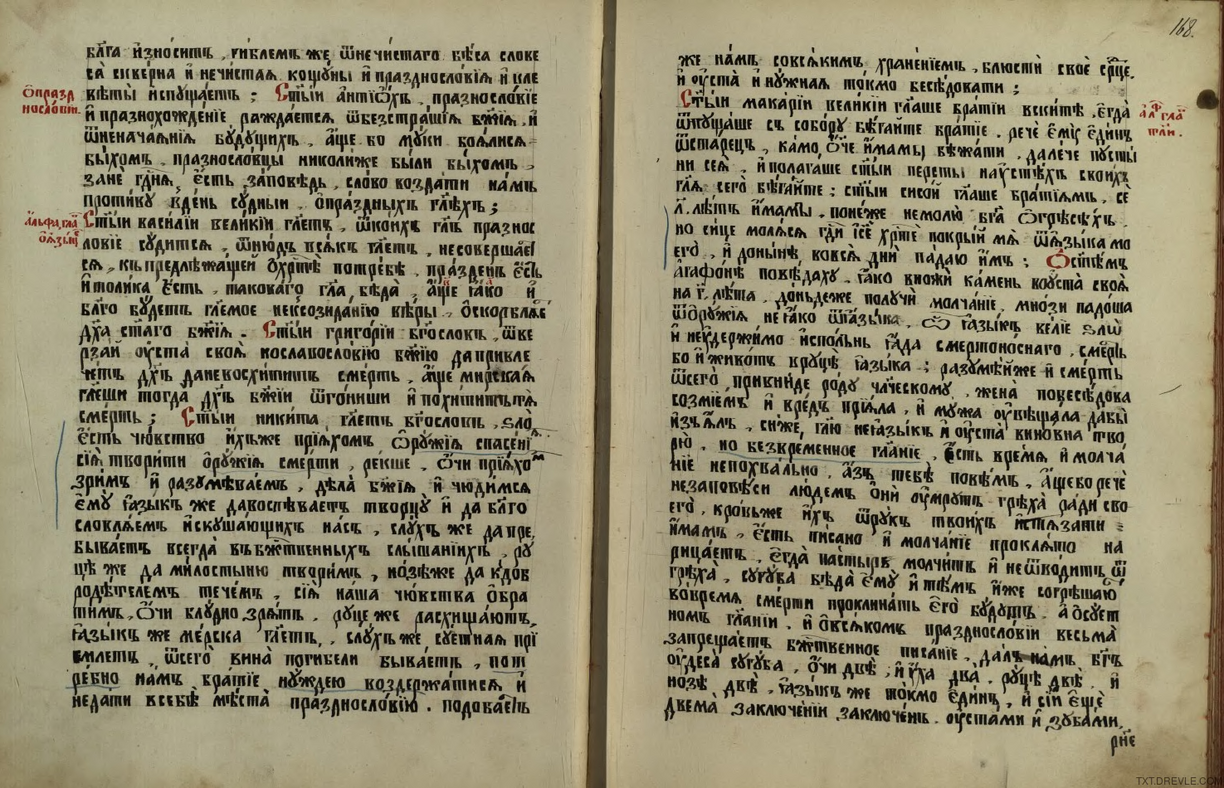 бл҃га и҆зно́ситъ , гн҃блемъ же ѿ нечи́стаго бѣ́са слове
са̀ скверна и҆ нечи́стая кощꙋ́ны и҆ празднослѡ́вїя и҆ кле
вѣ́ты и҆спꙋща́етъ ; Ст҃ы́и а҆нтїѻ́хъ , празносло́вїе
ѻ҆ празд
носло́вїи .
и҆ празнохожде́нїе ражда́ется ѿ безстра́шїя бж҃їя , и҆
ѿ неча́янїя бꙋ́дꙋщихъ , а҆́ще бо мꙋ́ки боя́лися
бы́хомъ , празносло́вцы николи́же бы́ли бы́хомъ ,
занѐ гд҃ня , є҆́сть за́повѣдь , сло́во возда́ти на́мъ
проти́вꙋ в де́нь сꙋ́дныи . ѻ҆ пра́здныхъ гл҃ѣхъ ;
Ст҃ы́и васи́лїи вели́кїи гл҃етъ , ѿ ко́ихъ гл҃ъ празнос
а҆́льфа, гла̀
ѻ҆ ꙗ҆зы́цѣ
ло́вїе сꙋ́дится , ѿню́дъ вся́къ гл҃етъ , несоверша́е
ся , къ предлежа́щей ѻ҆ хр҃тѣ̀ потре́бѣ , пра́зденъ є҆́сть
и҆ толи́ка є҆́сть , такова́го гл҃а , бѣда̀ , а҆́ще та́ко и҆
бл҃го бꙋ́детъ гл҃емое не к созида́нїю вѣ́ры , ѻ҆скорбля́е
дх҃а ст҃а́го бж҃їя . Ст҃ы́и григо́рїи бг҃осло́въ , ѿве
рза́й ᲂу҆ста̀ своя̀ ко славосло́вїю бж҃їю да привле
че́тъ дх҃ъ да не восхи́титъ сме́рть , а҆́ще мирска́я
гл҃еши тогда̀ дх҃ъ бж҃їи ѿго́ниши и҆ похи́титъ тя̀
сме́рть ; Ст҃ы́и ники́та гл҃етъ бг҃осло́въ , ѕло̀
є҆́сть чю́вство и҆́хъже прїя́хомъ ѻ҆рꙋ́жїя спасе́нї
сїя̀ твори́ти ѻ҆рꙋ́жїя сме́рти , ре́кше , ѻ҆́чи прїя́хо
зри́мъ и҆ разꙋмѣва́емъ , дѣла̀ бж҃їя и҆ чюди́мся
є҆мꙋ̀ ꙗ҆зы́къ же да воспѣва́етъ творцꙋ̀ и҆ да бл҃го
словля́емъ и҆скꙋша́ющихъ на́съ , слꙋ́хъ же да пре
быва́етъ всегда̀ въ бж҃твенныхъ слы́шанїихъ , рꙋ
цѣ́ же да ми́лостыню твори́мъ , но́зѣже да к доб
родѣ́телемъ тече́мъ , сїя̀ на́ша чю́вства ѻ҆бра
ти́мъ , ѻ҆́чи блꙋ́дно зря́тъ , рꙋ́це же расхища́ютъ ,
ꙗ҆зы́къ же ме́рска гл҃етъ , слꙋ́хъ же , сꙋ́етная прї
е́млетъ , ѿ сего̀ вина̀ поги́бели быва́етъ , пот
ре́бно на́мъ бра́тїе нꙋ́ждею воздержа́тися и҆
не да́ти в себѣ̀ мѣ́ста празднослѡ́вїю . подоба́етъ
168.
же на́мъ со вся́кимъ хране́нїемъ , блюсти́ своѐ ср҃це .
и҆ ᲂу҆ста̀ и҆ нꙋ́жная то́кмо бесѣ́довати ;
Ст҃ы́и мака́рїи вели́кїи гл҃аше бра́тїи в ски́тѣ , є҆гда̀
ѿпꙋща́ше съ собо́рꙋ бѣга́йте бра́тїе . речѐ є҆мꙋ̀ є҆ди́нъ
ѿ ста́рецъ , ка́мо ѻ҆́ч҃е и҆́мамы бѣжа́ти , дале́че пꙋсты́
ни сея̀ , и҆ полага́ше ст҃ы́и персты̀ на ᲂу҆стѣ́хъ свои́хъ
гл҃я сего̀ бѣга́йте : ст҃ы́и сисо́и гл҃аше бра́тїямъ , се
л҃ . лѣ́тъ и҆́мамы , поне́же не молю̀ бг҃а ѻ҆ грѣсѣ́хъ .
но си́це моля́ся гд҃и і҆с҃е хр҃те покры́й мя̀ ѿ ꙗ҆зы́ка мо
его̀ , и҆ доны́нѣ во вся̀ днѝ па́даю и҆́мъ ; Ѻ҆ ст҃ѣмъ
а҆гафо́нѣ повѣ́дахꙋ , ꙗ҆́ко вложѝ ка́мень во ᲂу҆ста̀ своя̀
на г҃ . лѣ́та , до́ндеже полꙋчѝ молча́нїе , мно́зи падо́ша
ѿ ѻ҆рꙋ́жїя не та́ко ѿ ꙗ҆зы́ка . Ѽ ꙗ҆зы́къ ве́лїе ѕло̀
и҆ неꙋдержи́мо и҆спо́лнь ꙗ҆́да смертоно́снаго , сме́рть
бо и҆ живо́тъ в рꙋцѣ̀ ꙗ҆зы́ка ; разꙋмѣ́йже и҆ сме́рть
ѿ сего̀ , прини́де ро́дꙋ чл҃ческомꙋ , жена̀ по бесѣ́дова
со змїе́мъ и҆ вре́дъ прїя́ла , и҆ мꙋ́жа ᲂу҆вѣща́ла дабы̀
и҆з̾ѣ́лъ , си́же , гл҃ю не ꙗ҆зы́къ и҆ ᲂу҆ста̀ вино́вна тво
рю̀ , но безвре́менное гл҃анїе , є҆́сть вре́мя и҆ молча́
нїе непохва́льно , а҆́зъ тебѣ̀ повѣ́мъ , а҆́ще бо речѐ
не заповѣ́си лю́демъ ѻ҆нѝ ᲂу҆́мрꙋтъ грѣха̀ ра́ди сво
его̀ , кро́вьже и҆́хъ ѿ рꙋ́къ твои́хъ и҆стяза́ти
и҆́мамъ , є҆́сть пи́сано и҆ молча́нїе прокля́то на
рица́етъ , є҆гда̀ па́стырь молчи́тъ и҆ не ѿво́дитъ ѿ
грѣха̀ , сꙋгꙋ́ба бѣда̀ є҆мꙋ̀ и҆ тѣ́мъ и҆́же согрѣша́ю
во вре́мя сме́рти проклина́ть є҆го̀ бꙋ́дꙋтъ . а҆ ѻ҆ сꙋ́ет
номъ гл҃анїи , и҆ ѻ҆ вся́комъ празднослѡ́вїи весьма̀
запреща́етъ бж҃твенное писа́нїе , да́лъ на́мъ бг҃ъ
ᲂу҆деса̀ сꙋгꙋ́ба , ѻ҆́чи двѣ̀ , и҆ ꙋ҆́ха два̀ . рꙋ́цѣ двѣ̀ . и҆
но́зѣ двѣ̀ , ꙗ҆зы́къ же то́кмо є҆ди́нъ , и҆ сїѝ є҆щѐ
двема̀ заключе́нїи заключе́нъ . ᲂу҆ста́ми и҆ зꙋба́ми ,
рн҃е
TXT.DREVLE.COM